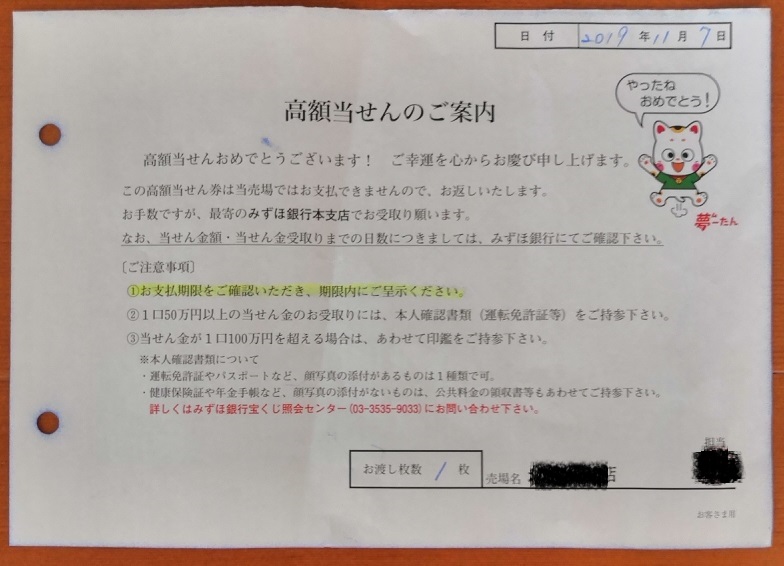 日 付 2019 年 11 月 7 日
やったね
おめでとう！
高額当せんのご案内
高額当せんおめでとうございます！　ご幸運を心からお慶び申し上げます。
この高額当せん券は当売場ではお支払できませんので、お返しいたします。
お手数ですが、最寄のみずほ銀行本支店でお受取り願います。
なお、当せん金額・当せん金受取りまでの日数につきましては、みずほ銀行にてご確認下さい。
夢一たん
〔ご注意事項〕
①お支払期限をご確認いただき、期限内にご呈示ください。
②１口50万円以上の当せん金のお受取りには、本人確認書類（運転免許証等）をご持参下さい。
③当せん金が１口100万円を超える場合は、あわせて印鑑をご持参下さい。
※本人確認書類について
・運転免許証やパスポートなど、顔写真の添付があるものは１種類で可。
・健康保険証や年金手帳など、顔写真の添付がないものは、公共料金の領収書等もあわせてご持参下さい。
詳しくはみずほ銀行宝くじ照会センター(03-3535-9033)にお問い合わせ下さい。
担当
お渡し枚数 1 枚
売場名 店
お客さま用